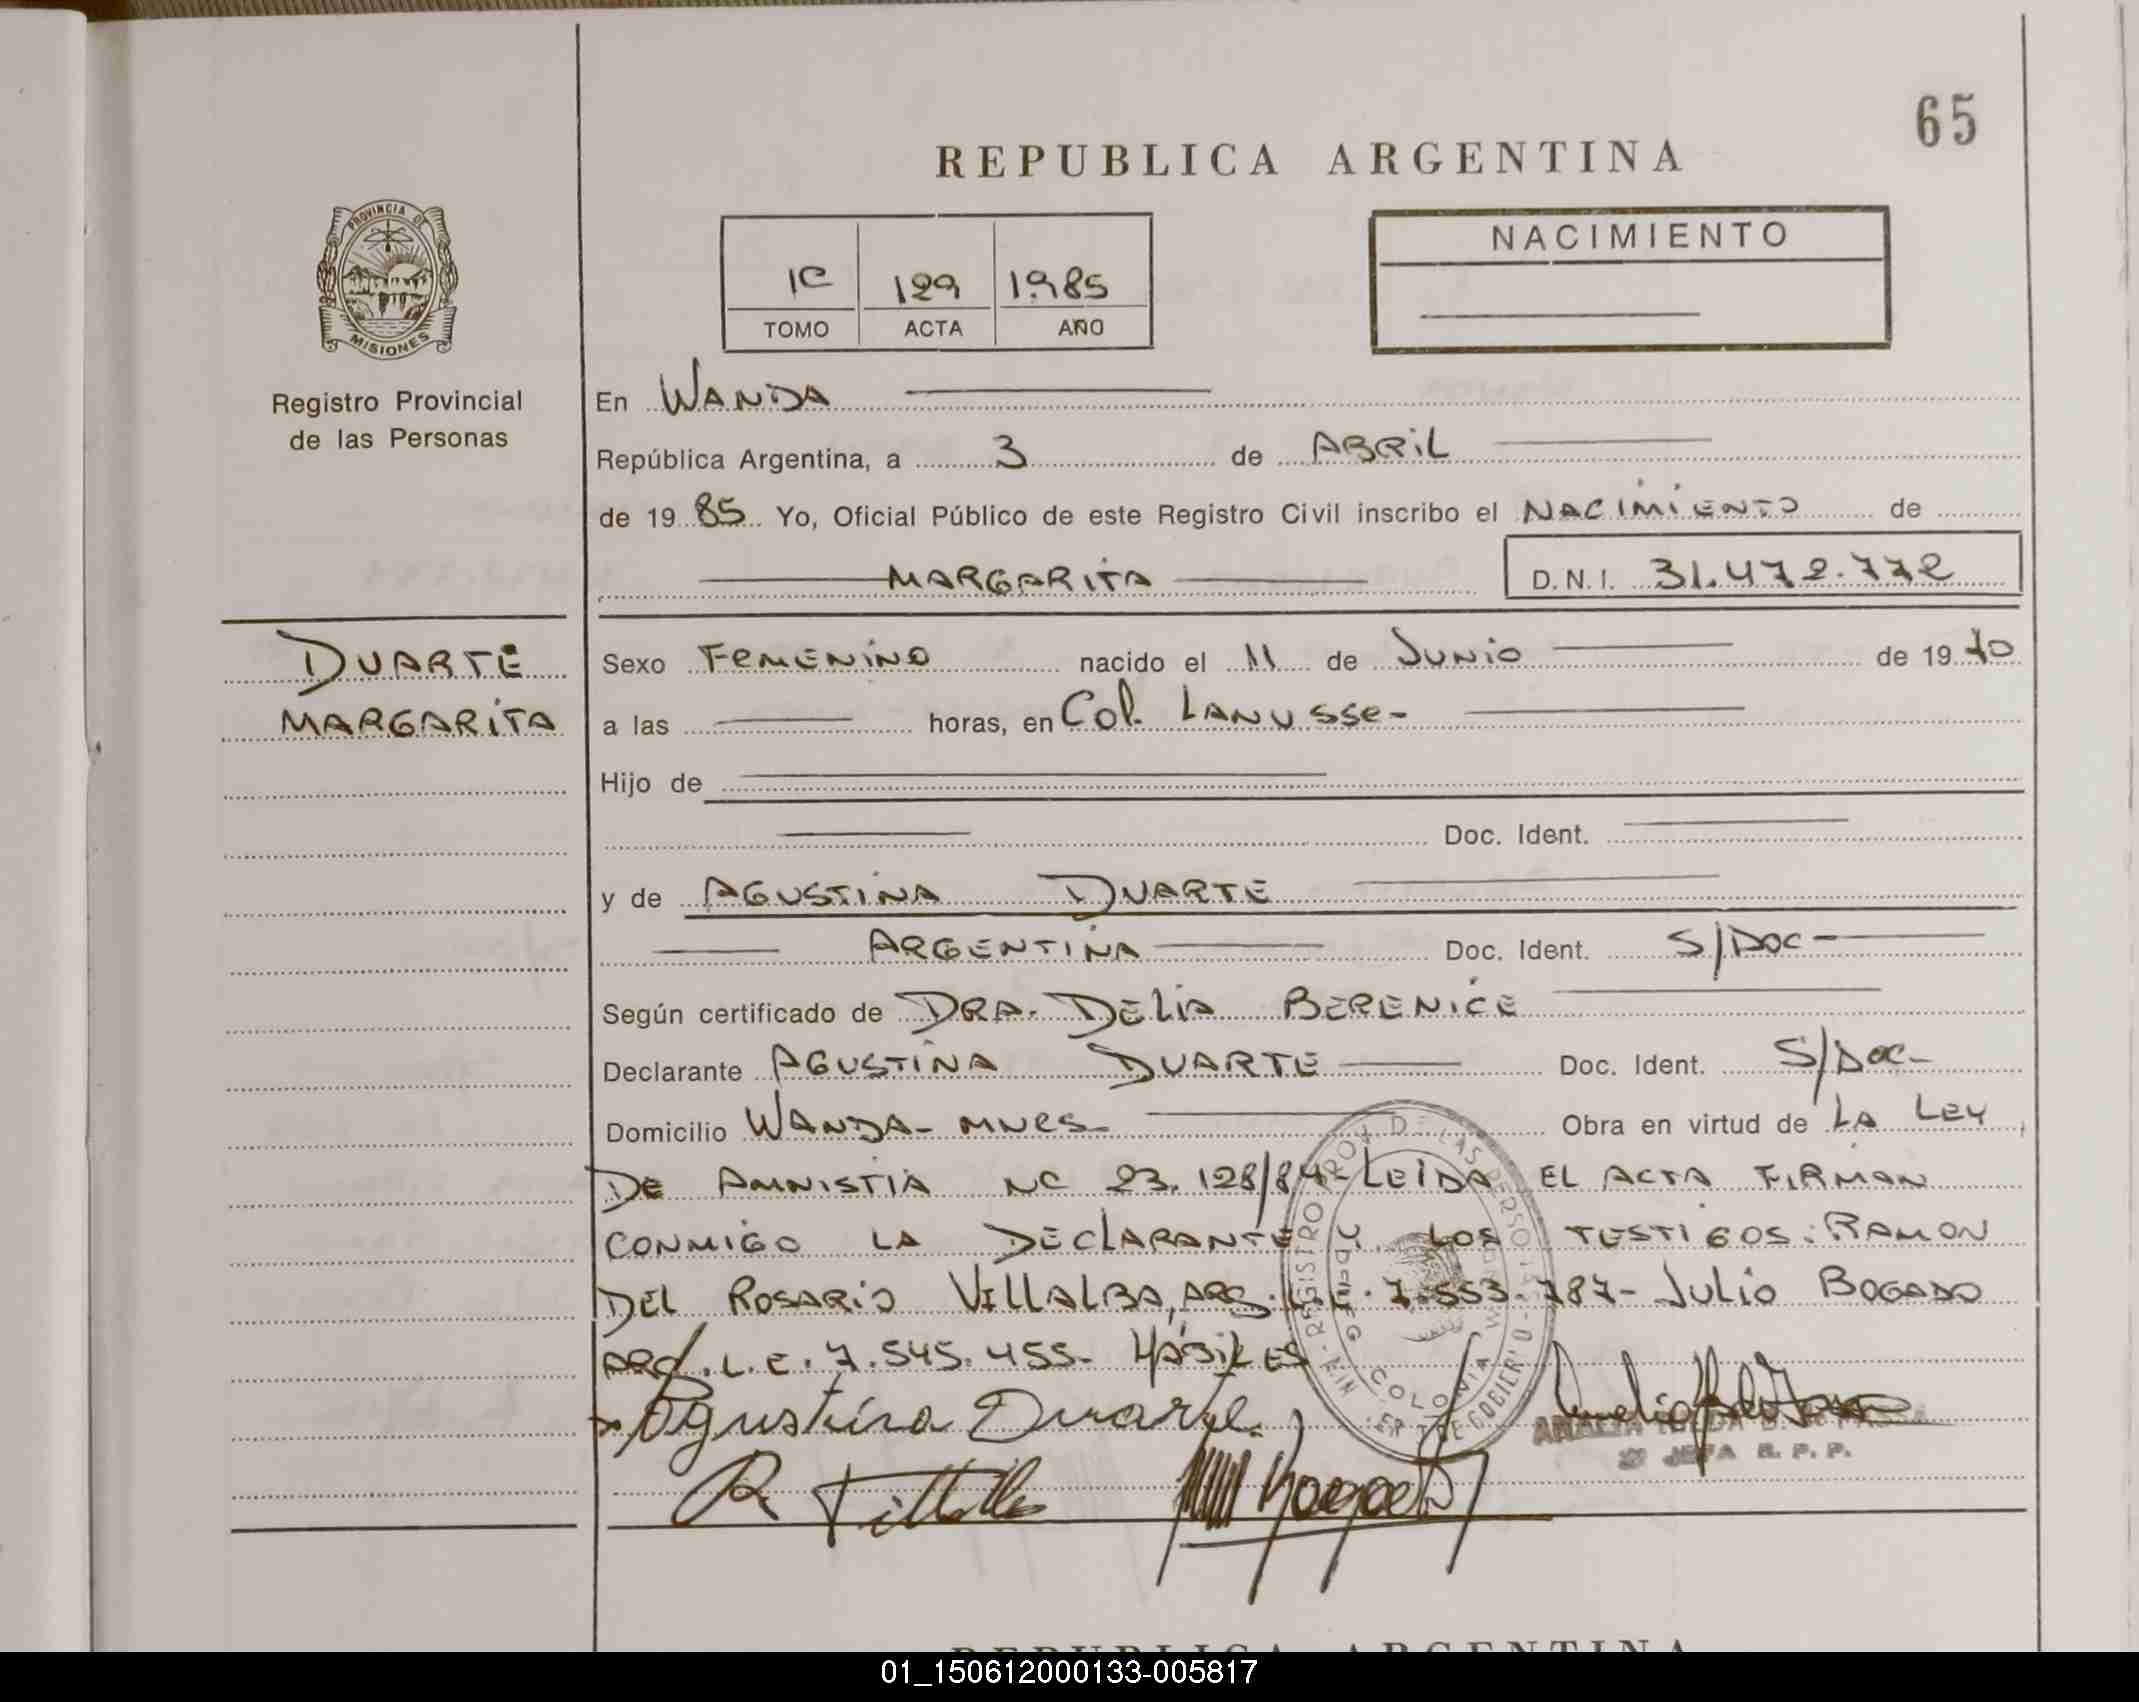 65
REPUBLICA ARGENTINA
PROVINCIA DE
MISIONES
Registro Provincial
de las Personas
1C 129 1985
TOMO ACTA AÑO
NACIMIENTO
En WANDA
República Argentina, a 3 de ABRIL
de 19 85 Yo, Oficial Público de este Registro Civil inscribo el NACIMIENTO de
MARGARITA D.N.I. 31.472.772
DUARTE
MARGARITA
Sexo FEMENINO nacido el 11 de JUNIO de 19 70
a las horas, en Col. LANUSSE-
Hijo de
Doc. Ident.
y de AGUSTINA DUARTE
ARGENTINA Doc. Ident. S/DOC-
Según certificado de DRA. DELIA BERENICE
Declarante AGUSTINA DUARTE Doc. Ident. S/DOC-
Domicilio WANDA- MNES- Obra en virtud de LA LEY
DE AMNISTIA NC 23.128/84- LEIDA EL ACTA FIRMAN
CONMIGO LA DECLARANTE Y LOS TESTIGOS: RAMON
DEL ROSARIO VILLALBA, ARG. L.E. 7.553.787- JULIO BOGADO
ARG. L.E. 7.545.455- HÁBILES
Agustina Duarte.
2ª JEFA R. P. P.
REPUBLICA ARGENTINA
01_150612000133-005817